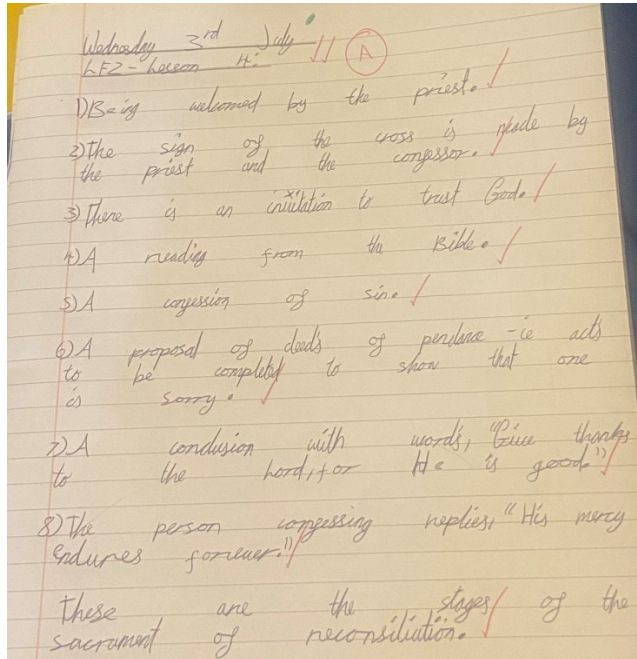 Wednesday 3rd July
LF2 - Lesson 4: A
1) Being welcomed by the priest.
2) The sign of the cross is made by
the priest and the confessor.
3) There is an invitation to trust God.
4) A reading from the Bible.
5) A confession of sin.
6) A proposal of deeds of pendance - ie acts
to be completed to show that one
is sorry.
7) A conclusion with words, "Give thanks
to the Lord, for He is good."
8) The person confessing replies, "His mercy
endures forever."
These are the stages of the
sacrament of reconsiliation.